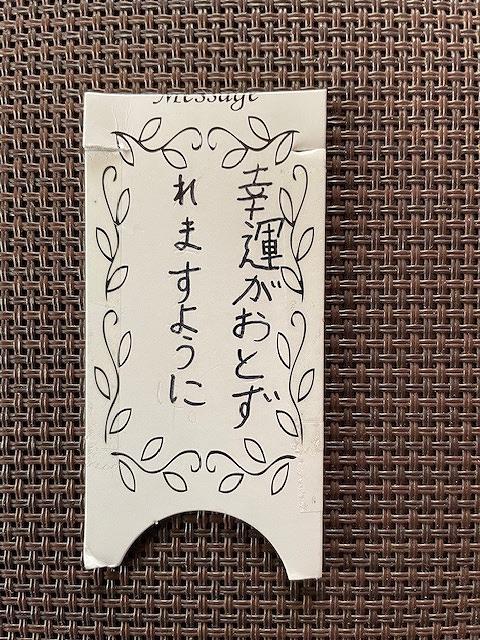 Message
幸運がおとず
れますように